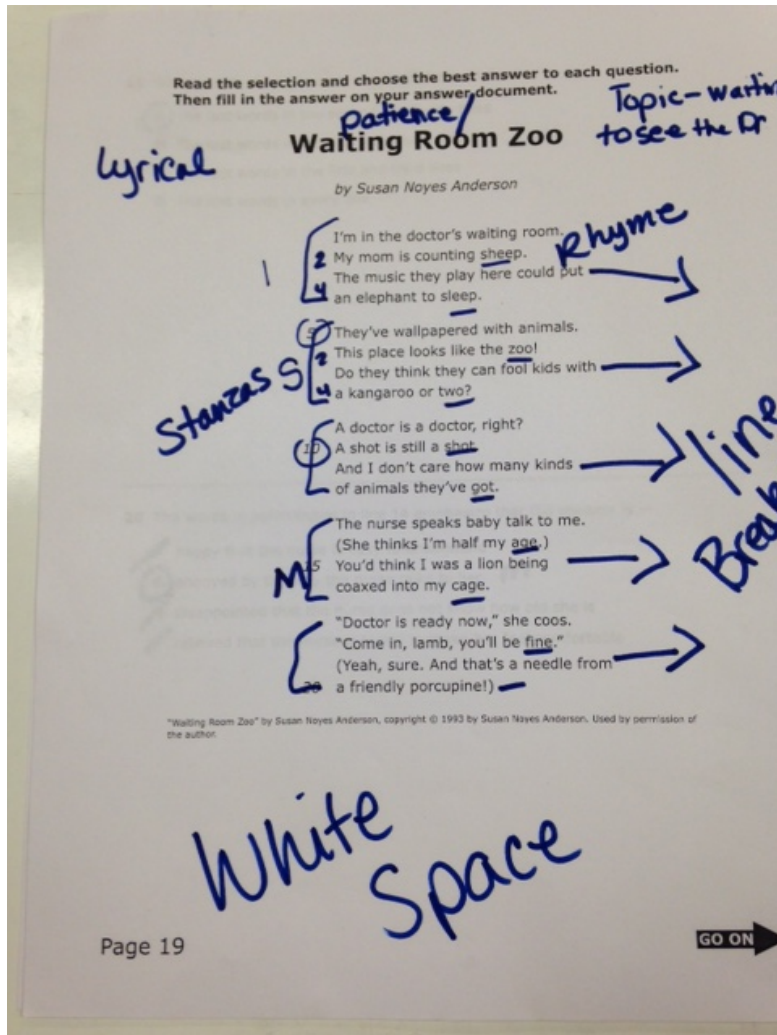 Read the selection and choose the best answer to each question.
Then fill in the answer on your answer document.
patience/
Topic - waitin
to see the Dr
Waiting Room Zoo
Lyrical
by Susan Noyes Anderson
Rhyme
I'm in the doctor's waiting room.
2 My mom is counting sheep.
1
The music they play here could put
4 an elephant to sleep.
5 They've wallpapered with animals.
2 This place looks like the zoo!
Stanzas S
Do they think they can fool kids with
4 a kangaroo or two?
A doctor is a doctor, right?
10 A shot is still a shot
And I don't care how many kinds
of animals they've got.
line
Break
The nurse speaks baby talk to me.
(She thinks I'm half my age.)
M 15 You'd think I was a lion being
coaxed into my cage.
"Doctor is ready now," she coos.
"Come in, lamb, you'll be fine."
(Yeah, sure. And that's a needle from
20 a friendly porcupine!)
"Waiting Room Zoo" by Susan Noyes Anderson, copyright © 1993 by Susan Noyes Anderson. Used by permission of
the author.
White
Space
Page 19
GO ON